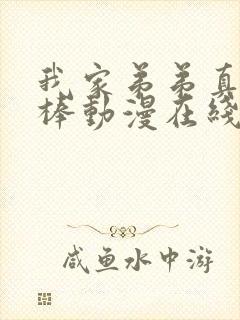 我家弟弟真
棒動漫在綫
咸鱼水中游